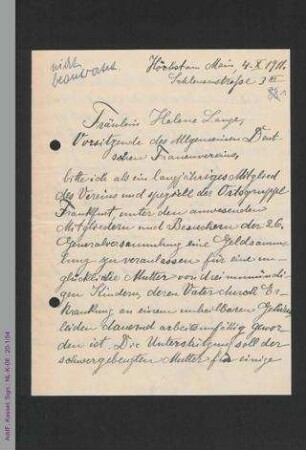 nicht
beantwortet.
Höchst am Main, 4. X. 1911.
Schleusenstraße 3 III
Fräulein Helene Lange,
Vorsitzende des Allgemeinen Deut-
schen Frauenvereins,
bitte ich als ein langjähriges Mitglied
des Vereins und speziell der Ortsgruppe
Frankfurt, unter den anwesenden
Mitgliedern und Besuchern der 26.
Generalversammlung eine Geldsamm-
lung zu veranlassen für eine un-
glückliche Mutter von drei unmündi-
gen Kindern, deren Vater durch Er-
krankung an einem unheilbaren Gehirn-
leiden dauernd arbeitsunfähig gewor-
den ist. Die Unterstützung soll der
schwergebeugten Mutter für einige
AddF, Kassel, Sign.: NL-K-06 ; 20-1/04